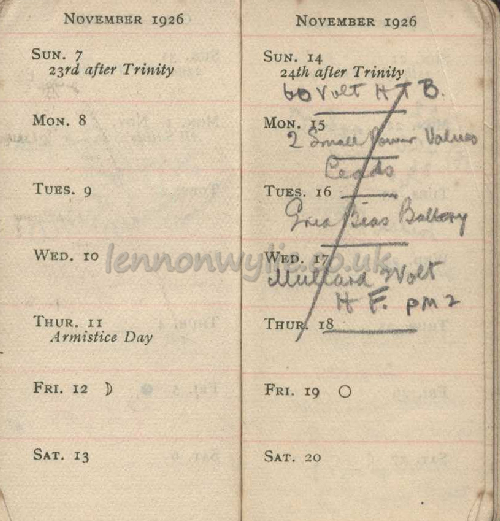 NOVEMBER 1926
SUN. 7
23rd after Trinity
MON. 8
TUES. 9
WED. 10
THUR. 11
Armistice Day
FRI. 12
SAT. 13
NOVEMBER 1926
SUN. 14
24th after Trinity
60 Volt H T B.
MON. 15
2 Small Power Valves
Leads
TUES. 16
Bias Battery
WED. 17
Mullard 2 Volt
H F. PM 2
THUR. 18
FRI. 19
SAT. 20
lennonwylie.co.uk